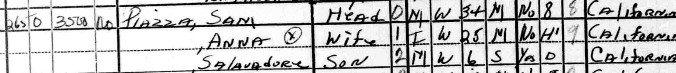 265 O 3500 No Piazza, Sam Head 0 M W 34 M No 8 8 California
, Anna ⓧ Wife 1 F W 25 M No H1 9 California
Salavadore Son 2 M W 6 S Yes 0 California